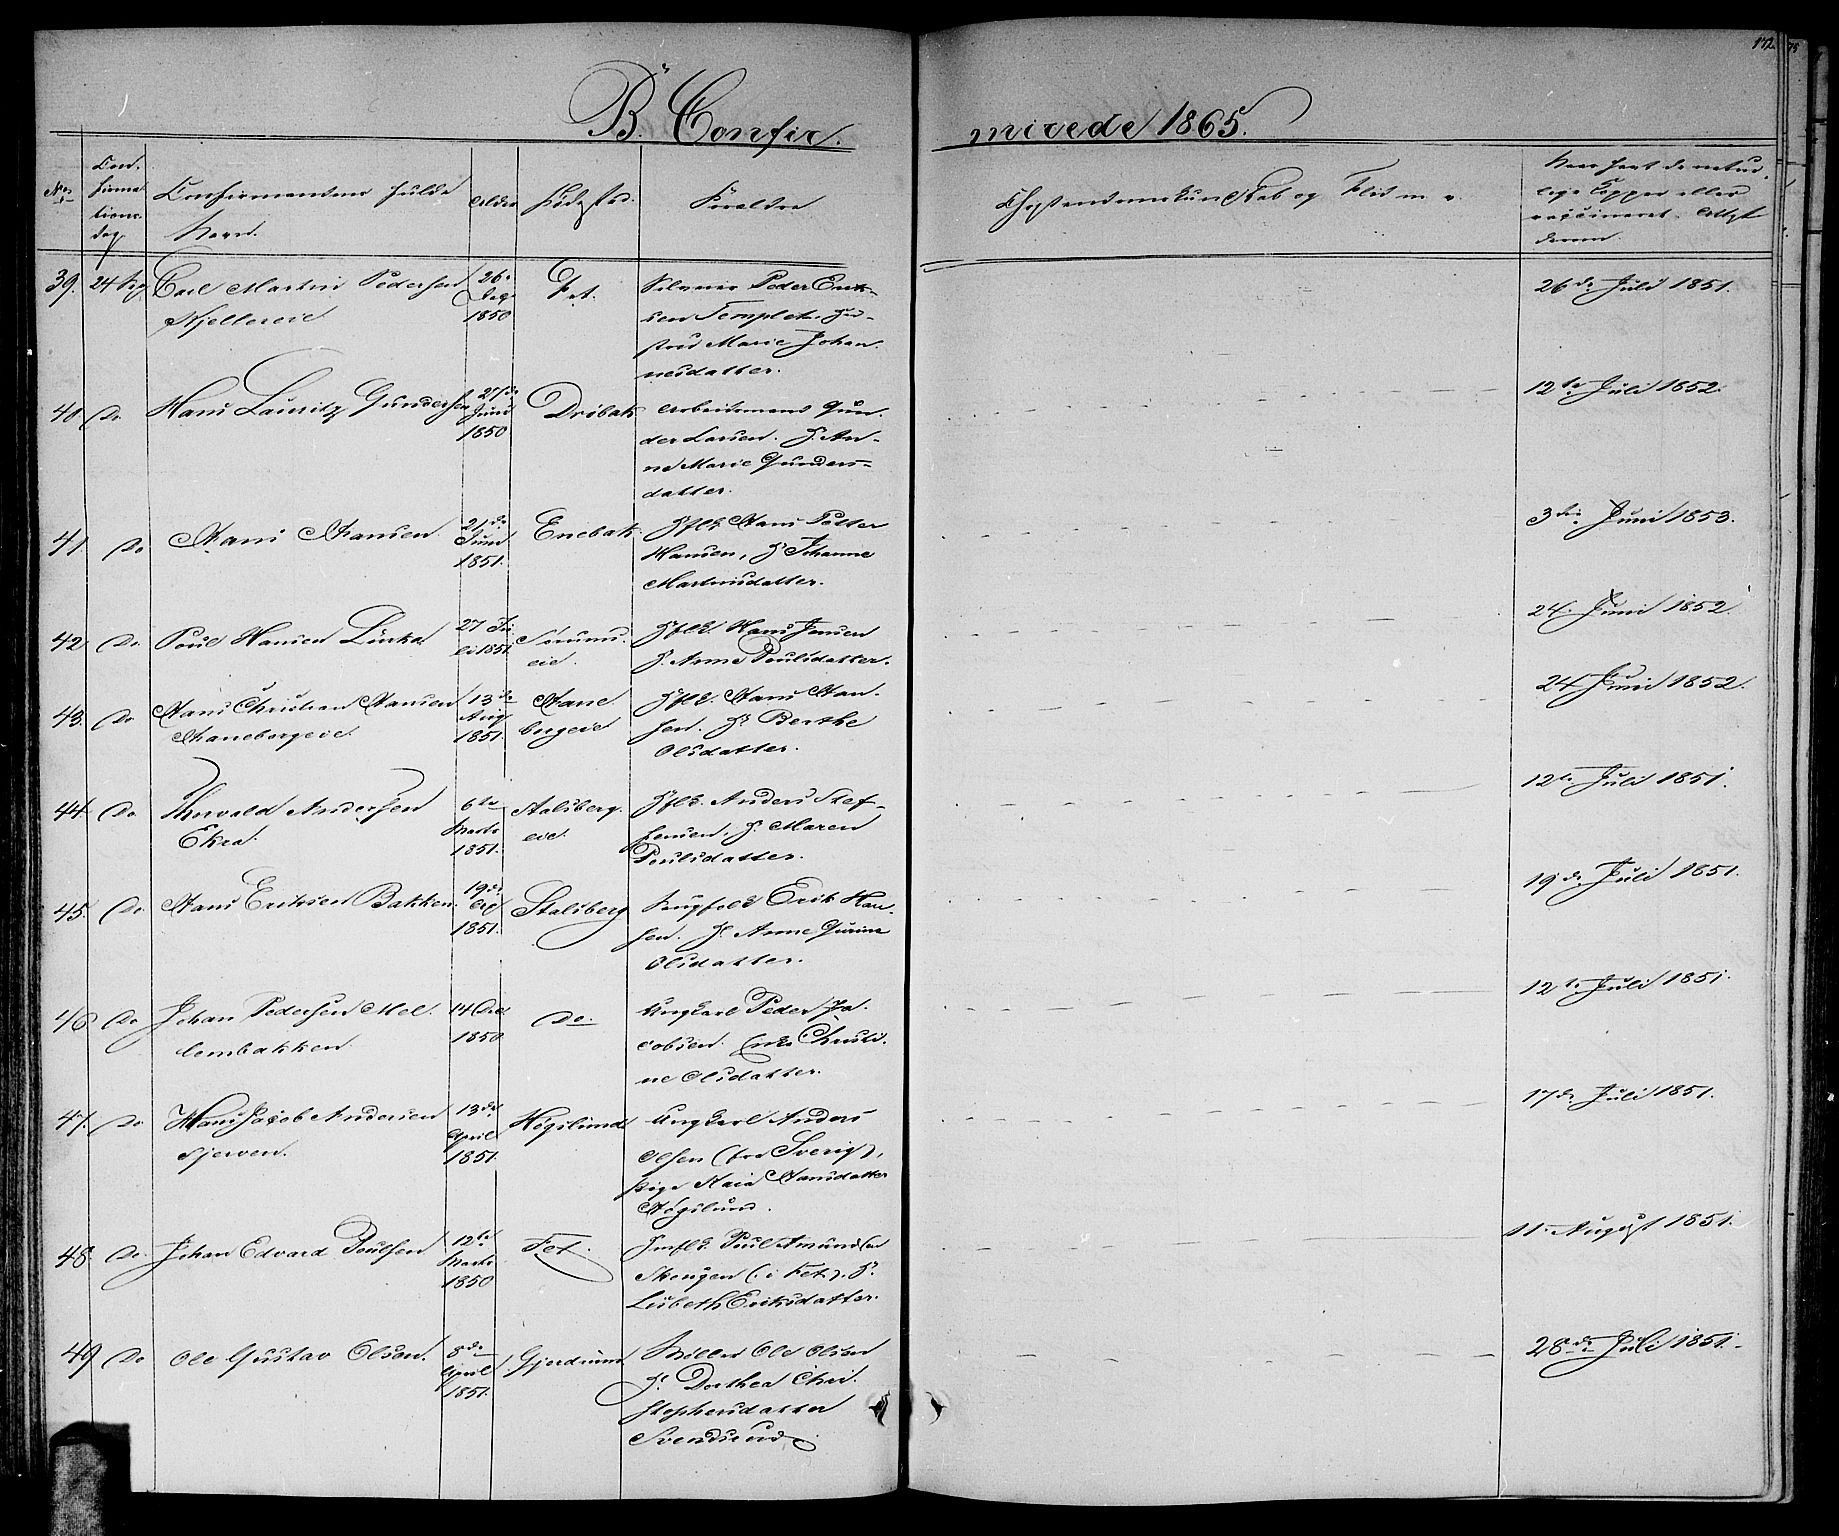 172
B. Confir-
mirede 1865.
No
Con-
firma-
tions-
dag
Confirmantens fulde
Navn.
Alder
Fødested.
Forældre
Christendomskundskab og Flid m. v.
Naar havt de natur-
lige Kopper eller
vaccineret. Attest
derom.
39. 24 Sep Carl Martin Pedersen
Kjellereie
26.
Dez.
1850
Fet.
Peder Erik-
sen Templet.
Marie Johan-
nesdatter.
26de Juli 1851.
40 Do Hans Lauritz Gundersen
27de
Juni
1850
Drøbak
Arbeidsmand Gun-
der Larsen. H. An-
ne Marie Gunders-
datter.
12te Juli 1852.
41 Do Hans Hansen
21de
Juni
1851.
Enebak
Hans Petter
Hansen, H. Johanne
Martinsdatter.
3die Juni 1853.
42 Do. Poul Hansen
27 Ju-
li 1851
Sørums-
eie.
Hans Jensen
H. Anne Poulsdatter.
24. Juni 1852.
43. Do Hans Christian Hansen
Hanebergeie.
13de
Aug
1851.
Hane
bergeie
Hans Han-
sen. H. Berthe
Olsdatter.
24 Juni 1852.
44. Do. Thorvald Andersen
Ekra.
6te
Marts
1851.
Stalsberg-
eie.
Anders Stef-
fensen. H. Maren
Poulsdatter.
12te Juli 1851.
45. Do. Hans Eriksen Bakken.
19de
1851.
Stalsberg
Erik Han-
sen. H. Anne Gurine
Olsdatter.
19de Juli 1851.
46 Do Johan Pedersen Mel-
lembakken.
14
1850
Do.
Ungkarl Peder Ja-
cobsen. Christi-
ne Olsdatter.
12te Juli 1851.
47. Do Hans Jacob Andersen
Tjerven.
13de
April
1851.
Høgslund
Ungkarl Anders
Olsen (fra Sverig),
pige Hansdatter
Høgslund.
17de Juli 1851.
48. Do. Johan Edvard Poulsen
12te
Marts
1850
Fet.
Poul Amundsen
(: i Fet). H.
Lisbeth Eriksdatter.
11. August 1851.
49 Do Ole Gustav Olsen.
8de
April
1851.
Gjerdrum
Møller Ole Olsen
H. Dorthea Chri-
stophersdatter
Svendsrud.
28de Juli 1851.